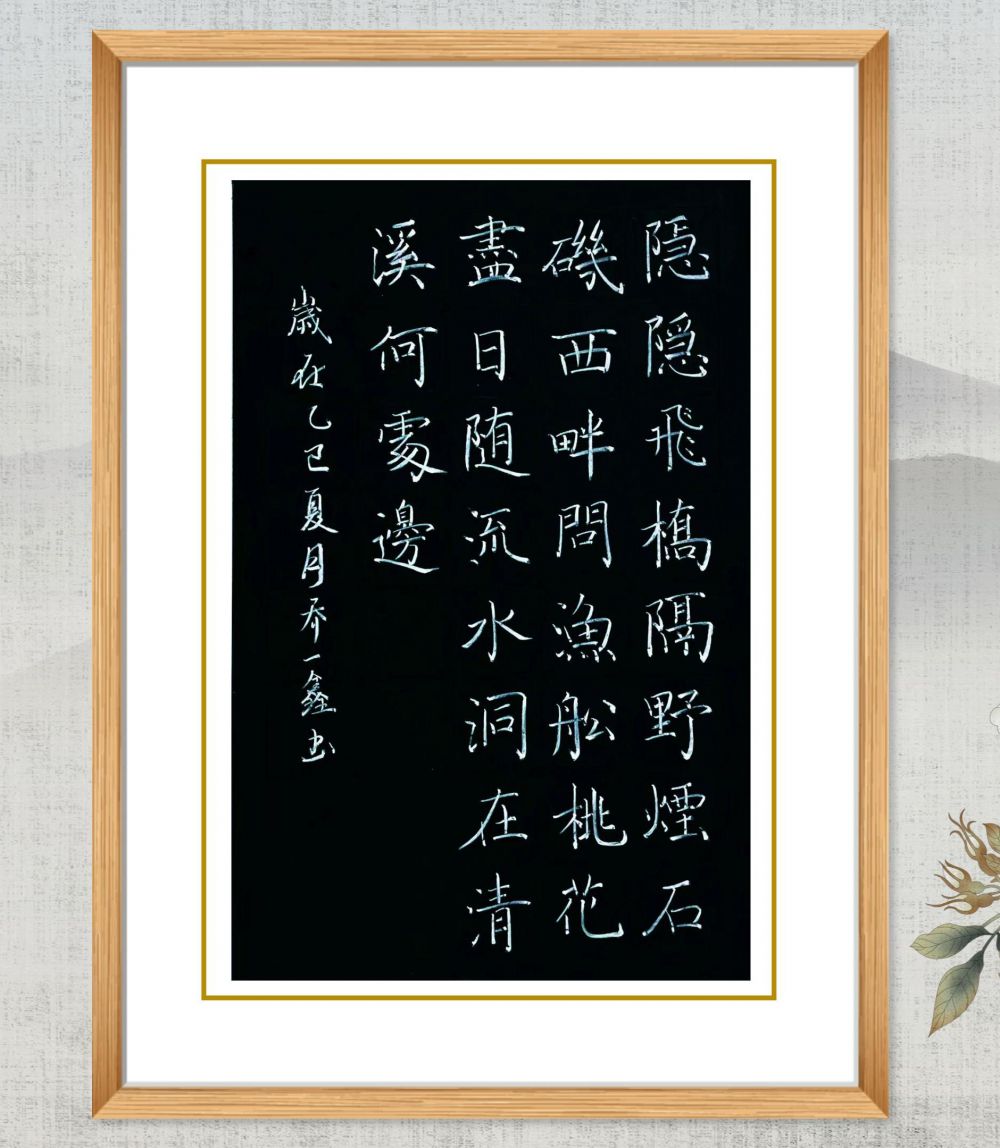 隠隠飛橋隔野煙石
磯西畔問漁船桃花
盡日随流水洞在清
溪何處邊
歲在乙巳夏月乔一鑫书